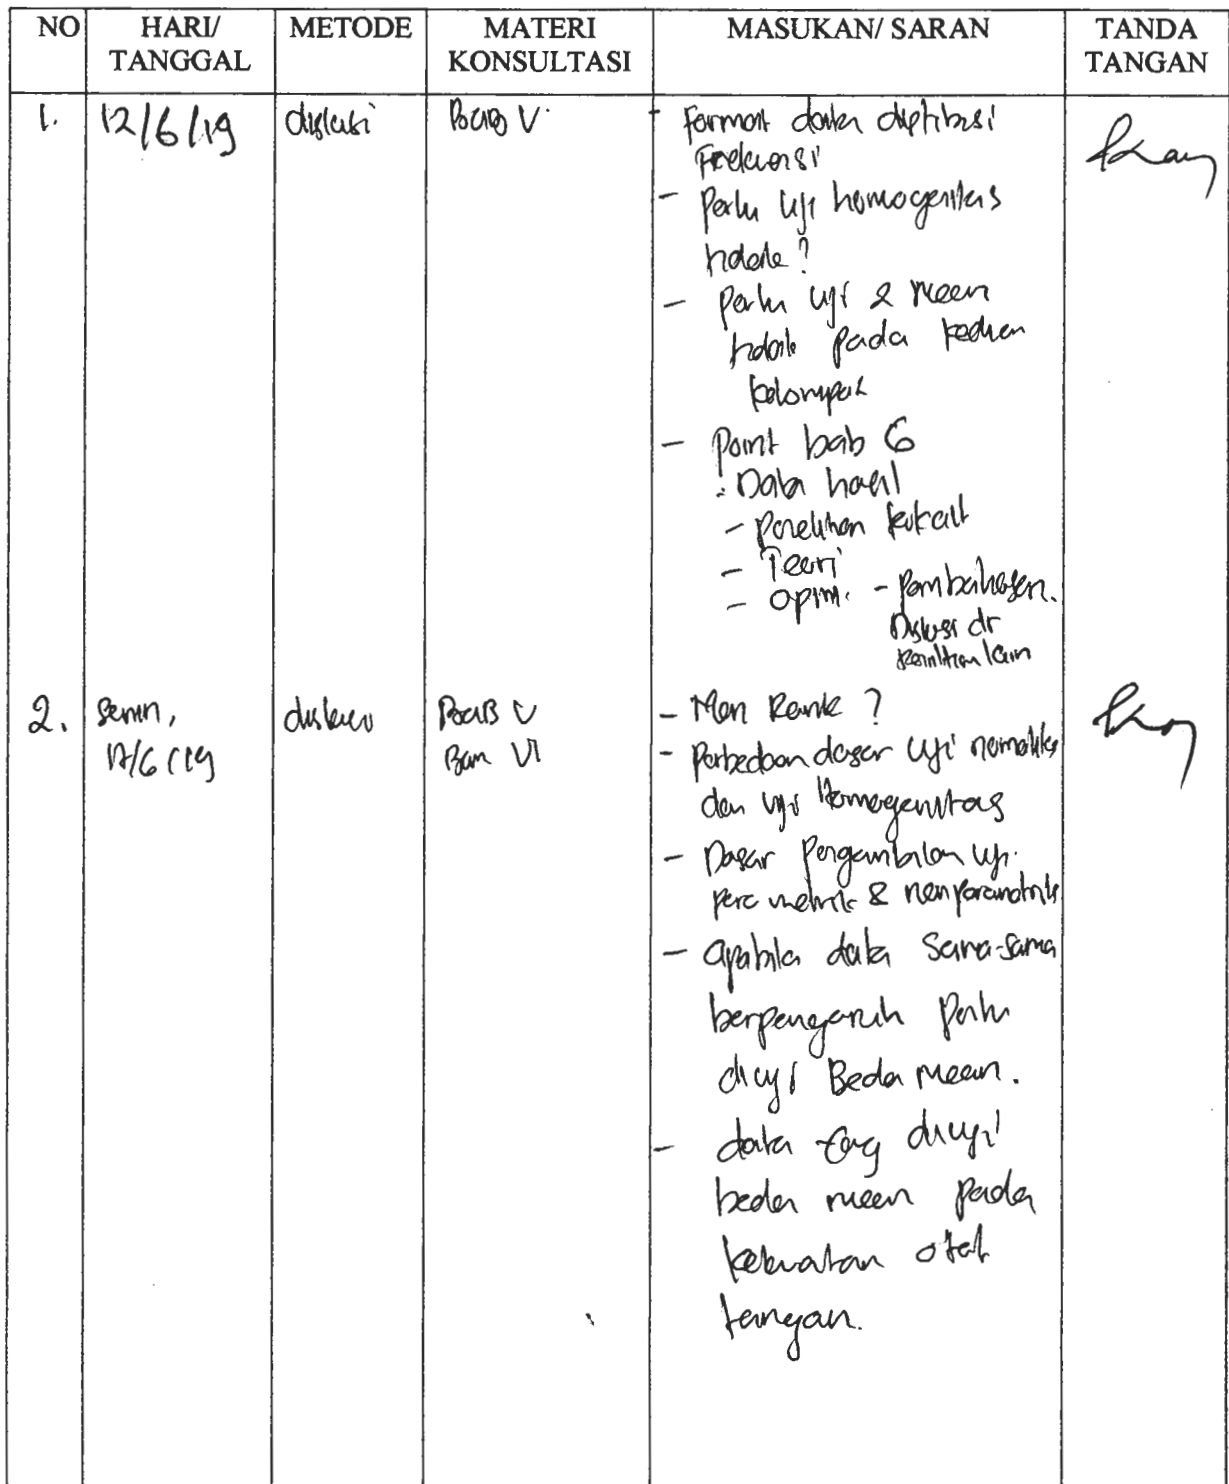 NO HARI/ TANGGAL METODE MATERI KONSULTASI MASUKAN/ SARAN TANDA TANGAN
1. 12/6/19 diskusi BAB V - Format data distribusi
Frekuensi
- Perlu uji homogenitas
tidak?
- perlu uji 2 mean
tidak pada kedua
kelompok
- Point bab 6
: Data hasil
- penelitian terkait
- Teori
- opini. - pembahasan.
Diskusi dr
penelitian lain
2. Senin, diskusi BAB V - Men Rank ?
17/6/19 Bab VI - Perbedaan dasar uji normalitas
dan uji Homogenitas
- Dasar Pengambilan uji
parametrik & nonparametrik
- apabila data sama-sama
berpengaruh perlu
diuji Beda mean.
- data yang diuji
beda mean pada
kekuatan otot
tangan.